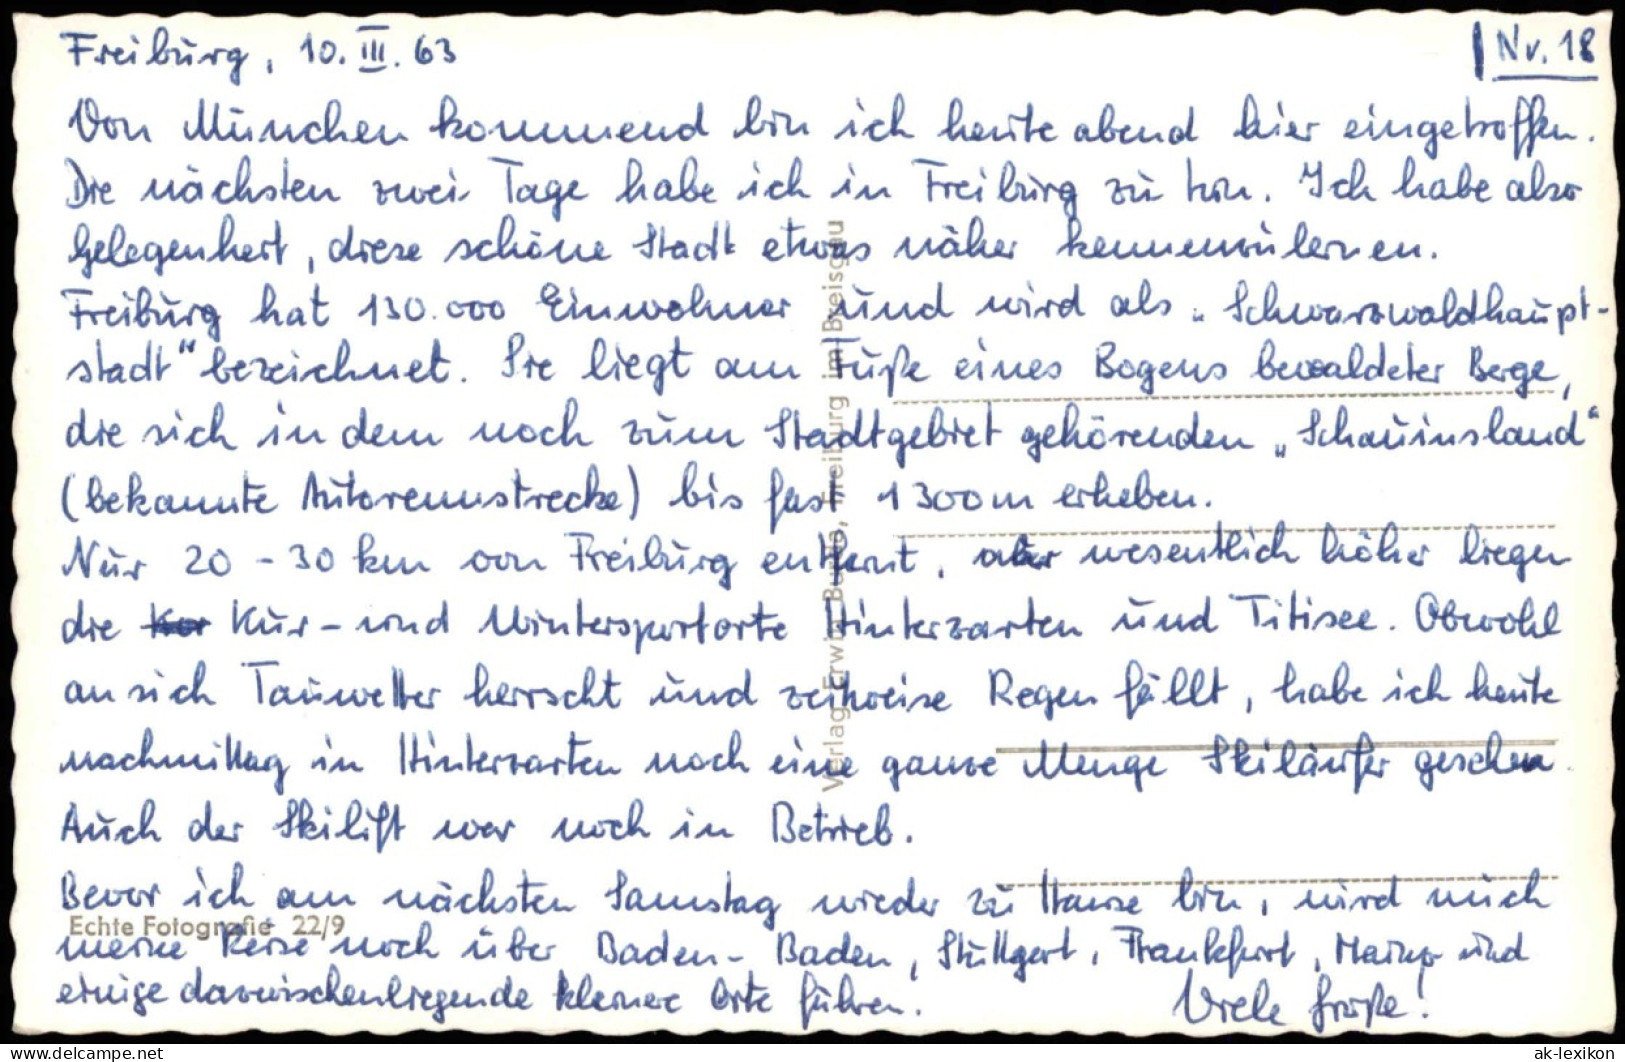 Freiburg, 10. III. 63
Nr. 18
Von München kommend bin ich heute abend hier eingetroffen.
Die nächsten zwei Tage habe ich in Freiburg zu tun. Ich habe also
Gelegenheit, diese schöne Stadt etwas näher kennenzulernen.
Freiburg hat 130.000 Einwohner und wird als „Schwarzwaldhaupt-
stadt" bezeichnet. Sie liegt am Fuße eines Bogens bewaldeter Berge,
die sich in dem noch zum Stadtgebiet gehörenden „Schauinsland"
(bekannte Autorennstrecke) bis fast 1300 m erheben.
Nur 20 - 30 km von Freiburg entfernt, aber wesentlich höher liegen
die Kur- und Wintersportorte Hinterzarten und Titisee. Obwohl
an sich Tauwetter herrscht und zeitweise Regen fällt, habe ich heute
nachmittag in Hinterzarten noch eine ganze Menge Skiläufer gesehen.
Auch der Skilift war noch in Betrieb.
Bevor ich am nächsten Samstag wieder zu Hause bin, wird mich
meine Reise noch über Baden-Baden, Stuttgart, Frankfurt, Mainz und
einige dazwischenliegende kleinere Orte führen.
Viele Grüße!
Echte Fotografie 22/9
Verlag Erwin Burda, Freiburg im Breisgau
ak-ansichtskarten.de
ak-lexikon